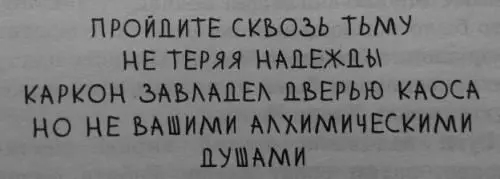 ПРОЙДИТЕ СКВОЗЬ ТЬМУ
НЕ ТЕРЯЯ НАДЕЖДЫ
КАРКОН ЗАВЛАДЕЛ ДВЕРЬЮ КАОСА
НО НЕ ВАШИМИ АЛХИМИЧЕСКИМИ
ДУШАМИ